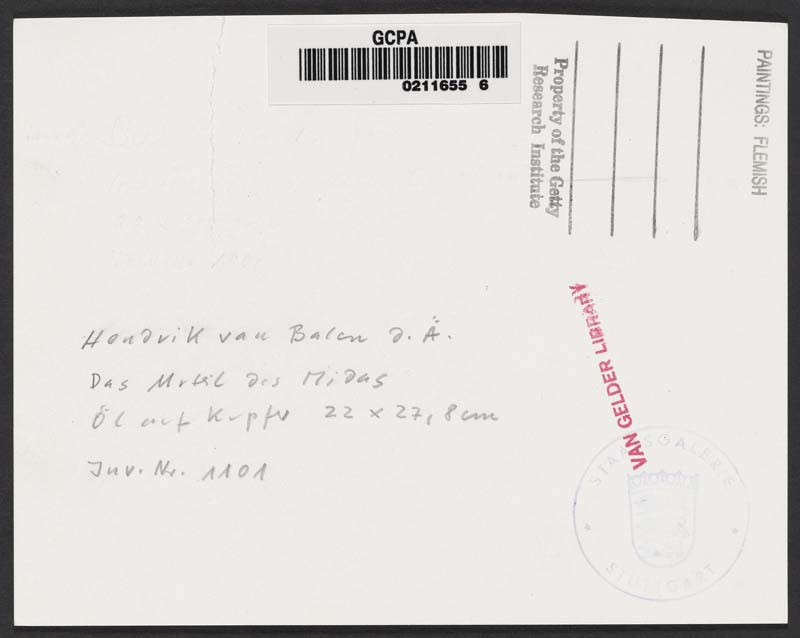 GCPA
0211655 6
Property of the Getty
Research Institute
PAINTINGS: FLEMISH
VAN GELDER LIBRARY
Hendrik van Balen d. Ä.
Das Urteil des Midas
Öl auf Kupfer 22 x 27,8 cm
Inv. Nr. 1101
STAATSGALERIE
STUTTGART